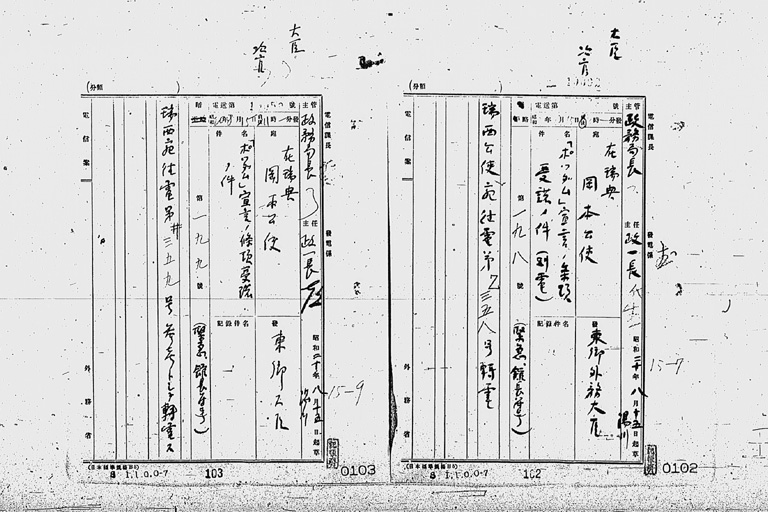 大臣
次官
(分類 )
電信課長
發電係
主管
政務局長
主任
政一長
昭和二十年八月十五日起草
電送第 號
昭和 年 月 日 時 分發
宛
在瑞典
岡本公使
發
東郷外務大臣
件名
「ポツダム」宣言ノ條項
受諾ノ件(別電)
記録件名
第一九八號
(緊急 館長符号)
瑞西公使宛往電第 三五八号轉電
電信案
外務省
15-7
(日本標準規格B5)
8 1.1.0.0-7
102
0102
大臣
次官
(分類 )
電信課長
發電係
主管
政務局長
主任
政一長
昭和二十年八月十五日起草
暗
電送第 號
時 分發
宛
在瑞典
岡本公使
發
東郷大臣
件名
「ポツダム」宣言ノ條項受諾
ノ件
記録件名
第一九九號
(緊急 館長符号)
瑞西宛往電第 三五九号参考トシテ轉電ス
電信案
外務省
15-9
(日本標準規格B5)
8 1.1.0.0-7
103
0103